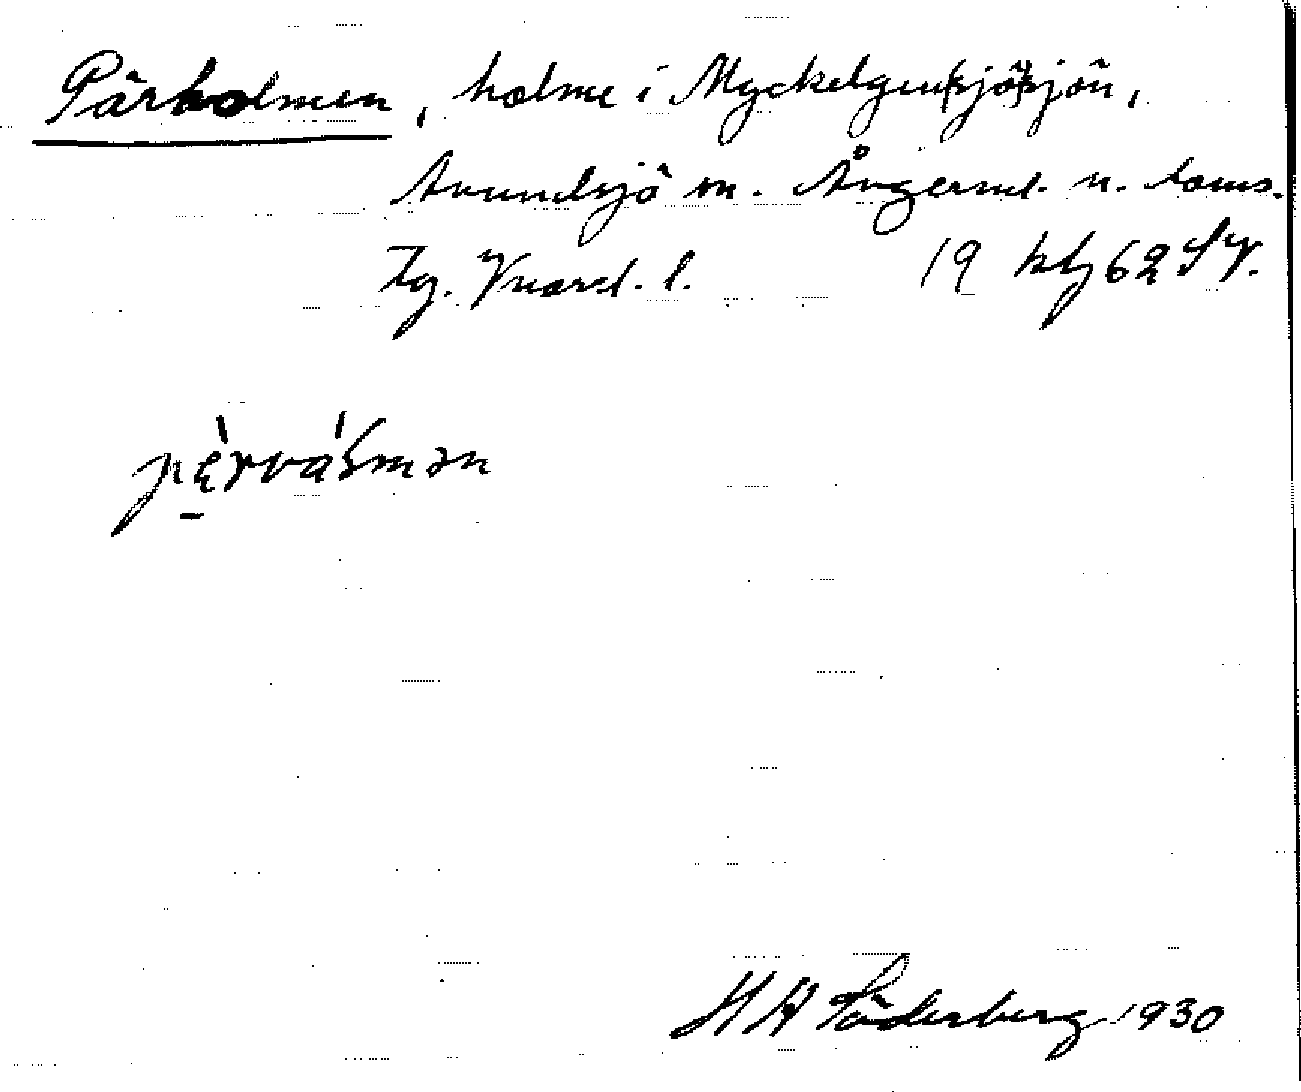 Pärholmen, holme i Myckelgensjösjön,
Anundsjö sn. Ångerml. n. doms.
Tg. Vnorrl. l. 19 klg 62 SV.
pèrvásmən
H H Söderberg 1930